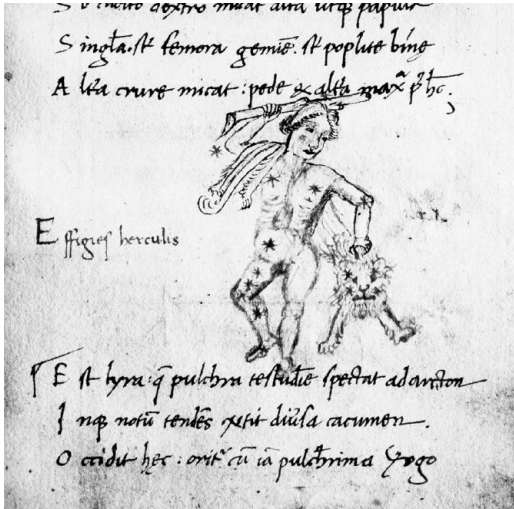 dextro micat alta
Singla. st femora gemie. st poplite bine
Alta crure micat : pede & alta max p hc.
Effigies herculis
Est lyra: q pulchra testudie spectat ad arcton
Inq notu tendes extit diuisa cacumen.
Occidit hec : orit cu ia pulchrima Virgo